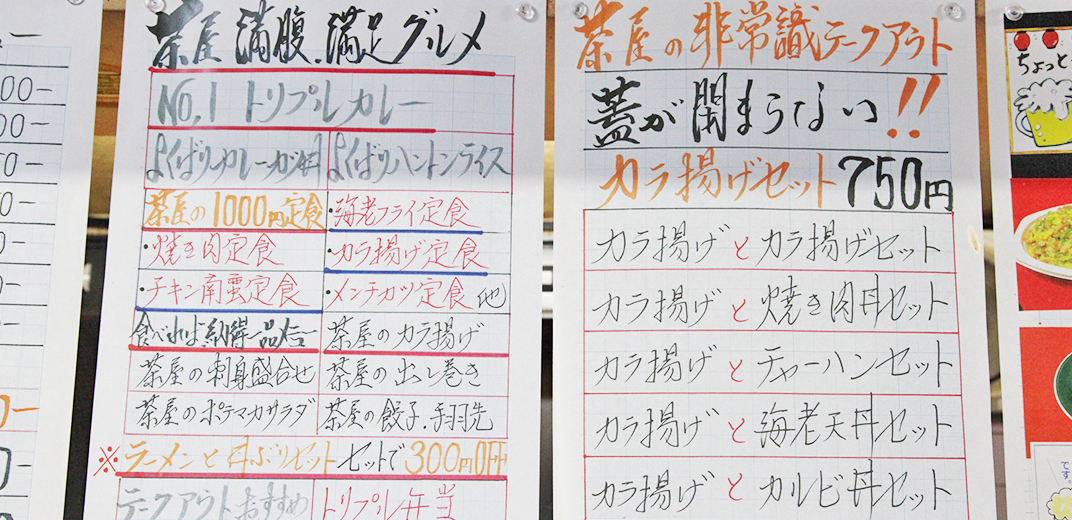 茶屋 満腹.満足グルメ
NO,1 トリプルカレー
よくばりカレーカツ丼 よくばりハントンライス
茶屋の1000円定食 ・海老フライ定食
・焼き肉定食 ・カラ揚げ定食
・チキン南蛮定食 ・メンチカツ定食(他)
食べれば納得一品メニュー 茶屋のカラ揚げ
茶屋の刺身盛合せ 茶屋の出し巻き
茶屋のポテマカサラダ 茶屋の餃子.手羽先
※ラーメンと丼ぶりセット セットで300円OFF
テークアウトおすすめ トリプル弁当
茶屋の非常識テークアウト
蓋が閉まらない!!
カラ揚げセット750円
カラ揚げとカラ揚げセット
カラ揚げと焼き肉丼セット
カラ揚げとチャーハンセット
カラ揚げと海老天丼セット
カラ揚げとカルビ丼セット
ちょっと
です。